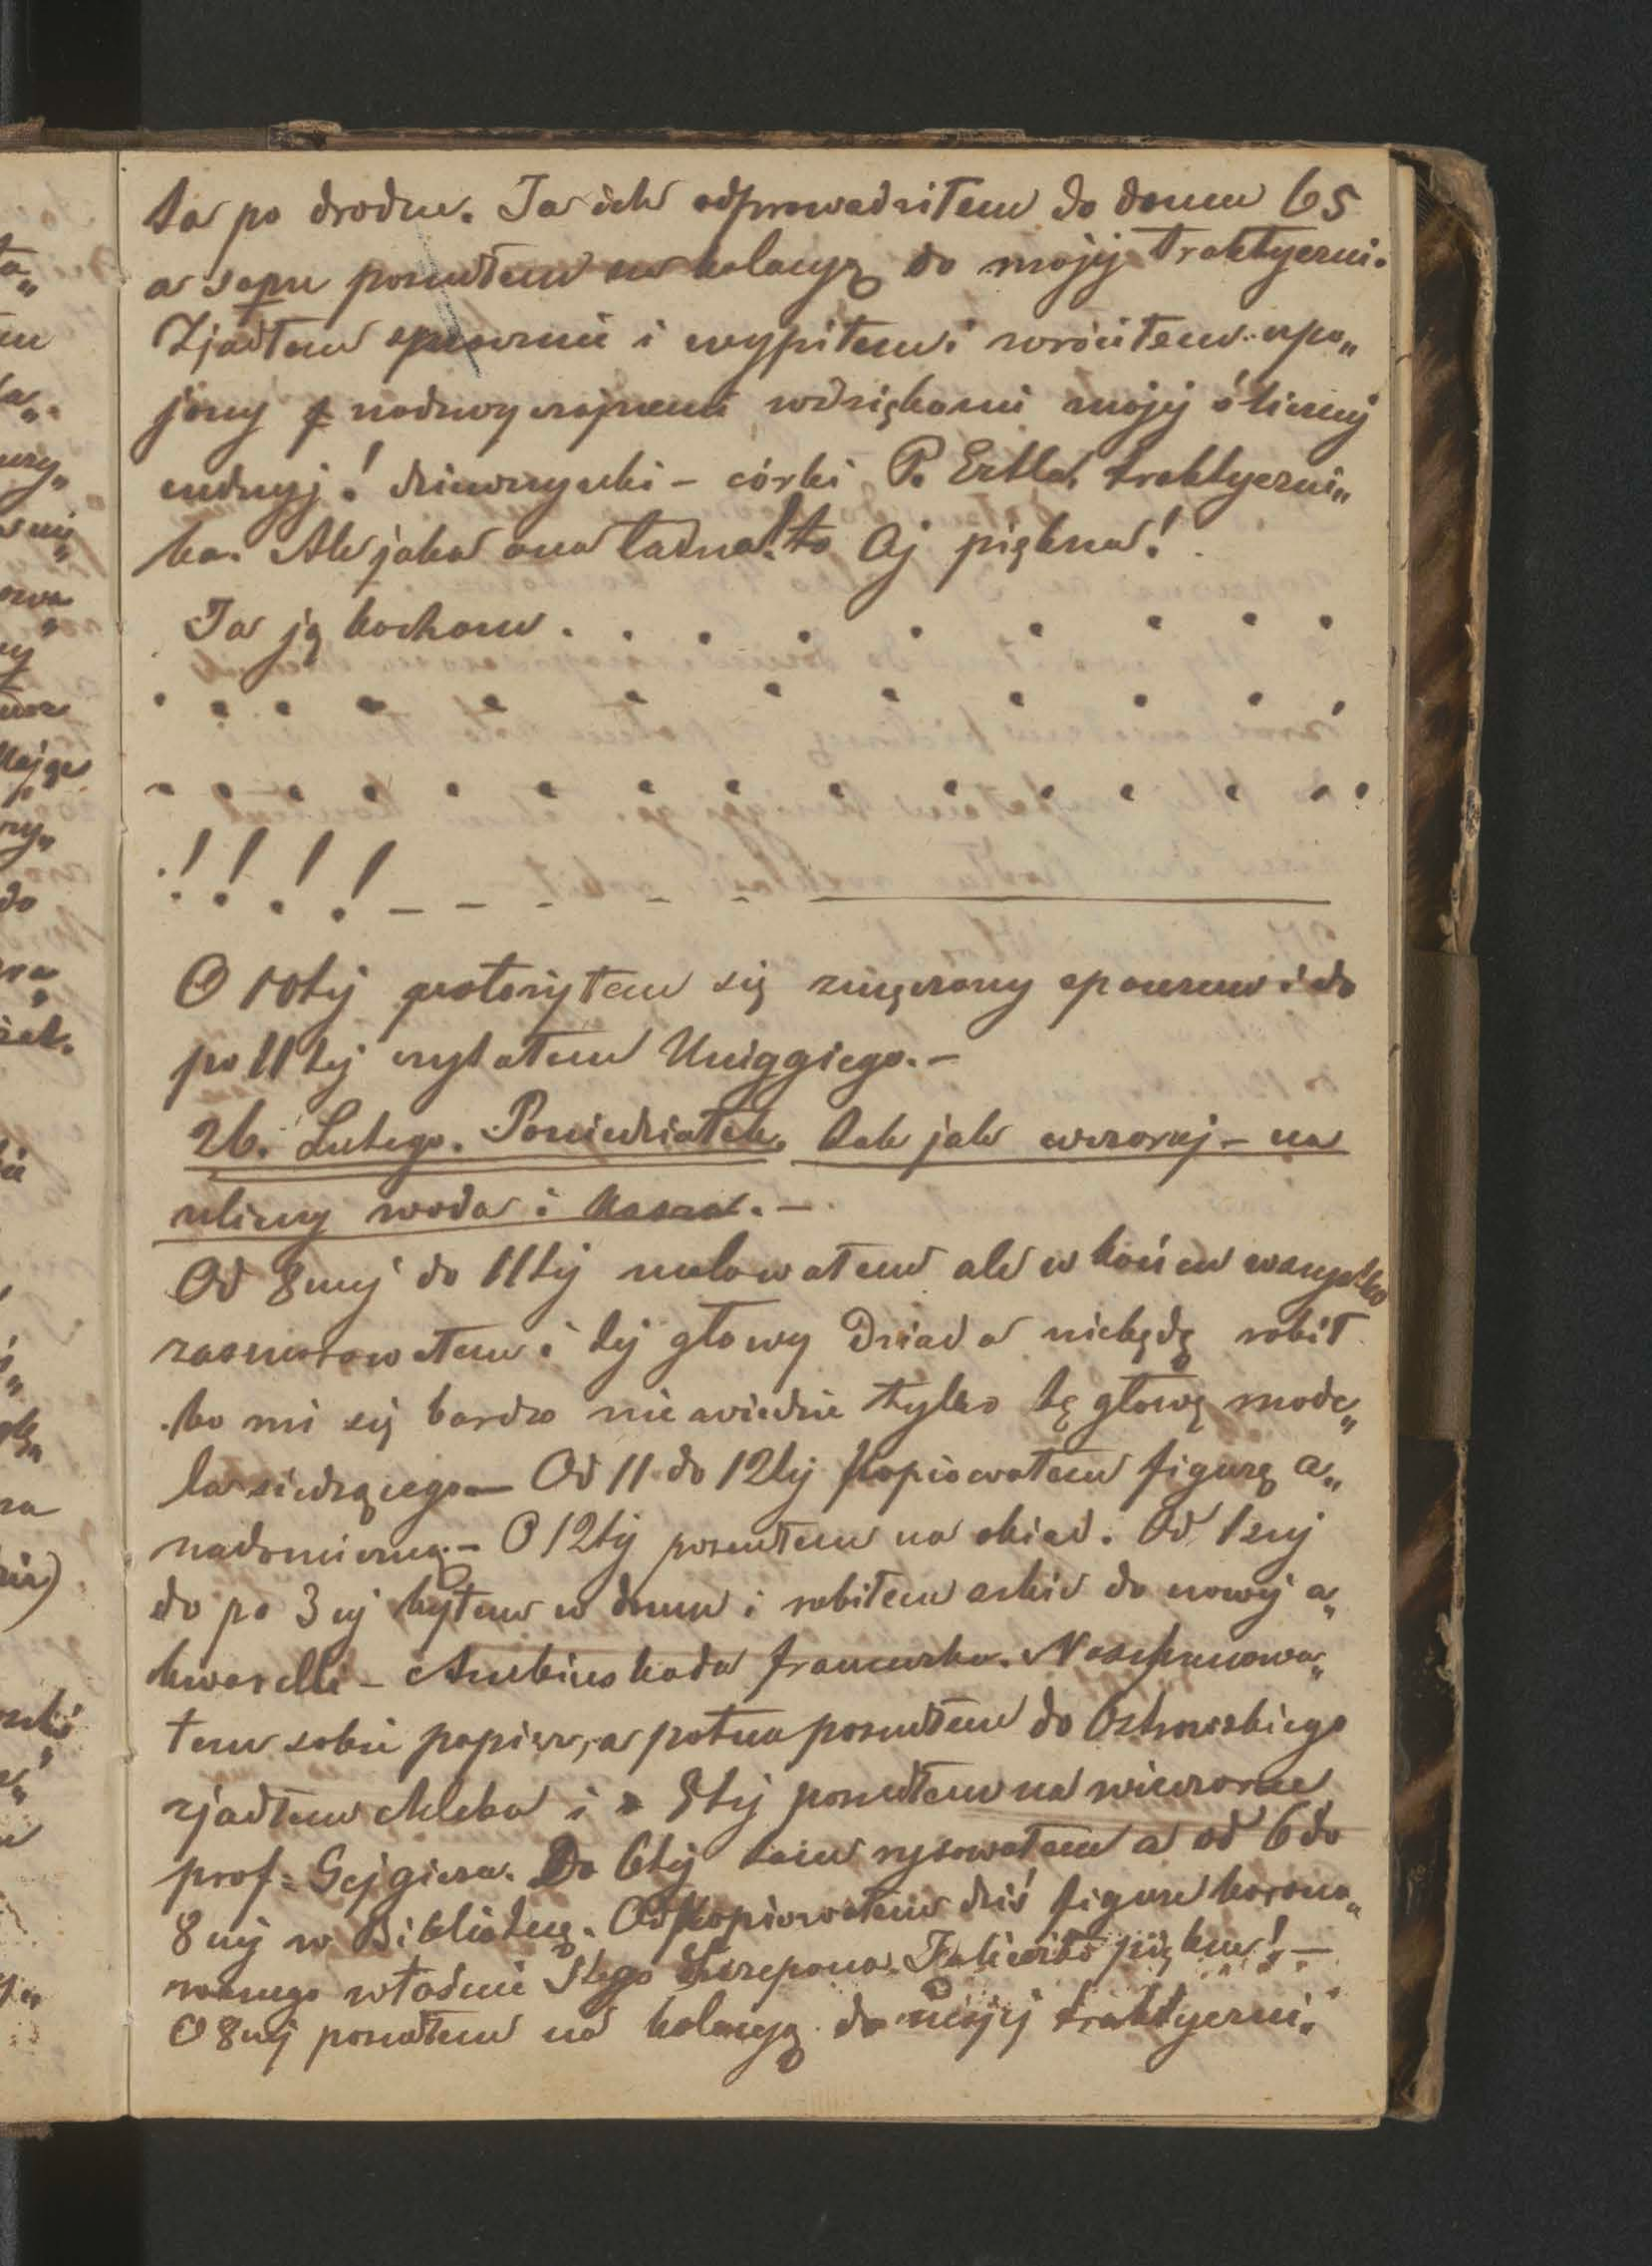 ta po drodze. Ja ich odprowadziłem do domu 65
a sam poszedłem na kolacyą do mojej traktyerni.
Zjadłem i wypiłem i wróciłem upo„
jony nadzwyczajnemi wdziękami mojej ślicznej
cudnej! dziewczynki – córki P. Ertla, traktyerni„
ka. Ale jaka ona ładna! to Aj piękna!
Ja ją kocham . . . . . . . . .
. . . . . . . . . . . .
. . . . . . . . . . . . . .
! ! ! ! – – – – –
O 10tej położyłem się zmęczony spacerem i do
po 11tej czytałem Uniggiego. –
26. Lutego. Poniedziałek. Tak jak wczoraj – na
ulicy woda i kasza. –
Od 8mej do 11tej malowałem ale w końcu wszystko
zasmarowałem i tej głowy Dziada niebędę robił
bo mi się bardzo nie wiedzie tylko tę głowę mode„
la siedzącego – Od 11 do 12tej kopiowałem figurę a„
nadomiczną – O 12tej poszedłem na obiad. Od 1szej
do po 3ej byłem w domu i robiłem szkic do nowej a„
kwarelli – Ambuskada francuska. Naszpanowa„
łem sobie papieru, a potem poszedłem do
zjadłem chleba i o 5tej poszedłem na wieczorne
prof. Gejgiera. Do 6tej tam rysowałem a od 6 do
8mej w Bibliotece. Odkopiowałem dziś figurę korono„
wanego właśnie Stego Szczepana. piękne! –
O 8mej poszedłem na kolacyą do mojej traktyerni.